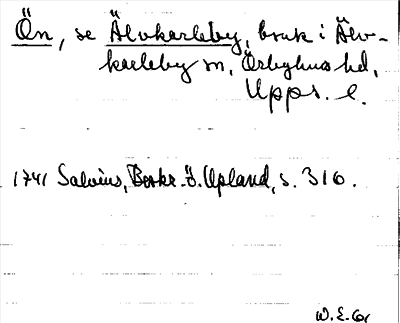 Ön, se Älvkarleby, bruk i Älv-
karleby sn, Örbyhus hd,
Upps. l.
1741 Salvius, Beskr. ö. Upland, s. 316.